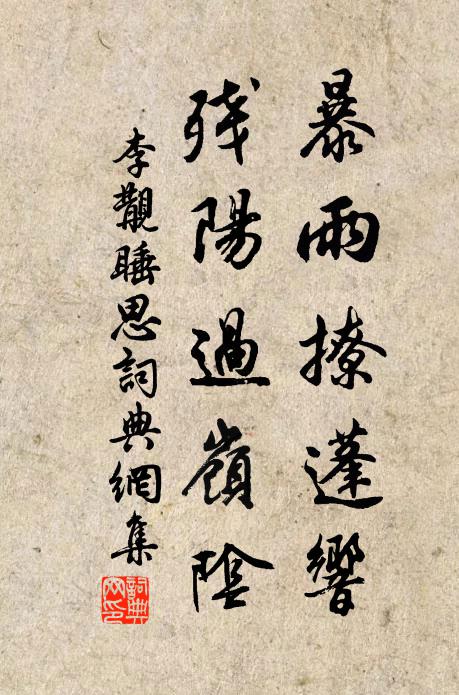 暴雨撩蓬響
殘陽過嶺陰
李覯睡思詞典網集
詞典
網印